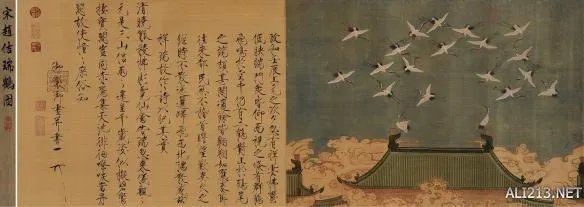 政和壬辰上元之次夕忽有祥雲拂鬱
低映端門衆皆仰而視之倏有群鶴
飛鳴於空中仍有二鶴對止於鴟尾
之端頗甚閒適餘皆翱翔如應奏節
往來都民無不稽首瞻望歎異久之
經時不散迤邐歸飛西北隅散感茲
祥瑞故作詩以紀其實
清曉觚稜拂彩霓仙禽告瑞忽來儀飄飄
元是三山侶兩兩還呈千歲姿似擬碧鸞
棲寶閣豈同赤鴈集天池徘徊嘹唳當丹
闕故使憧憧庶俗知
御製御畫并書
宋趙佶瑞鶴圖
ALI213.NET